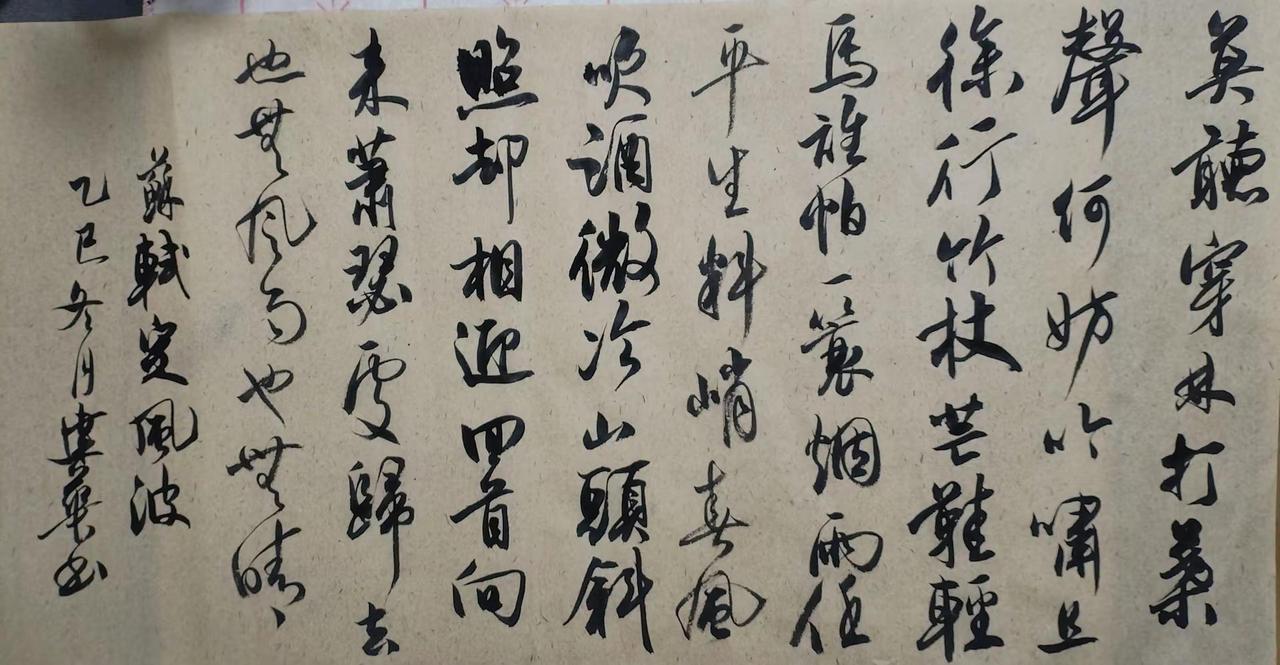 莫聽穿林打葉
聲何妨吟嘯且
徐行竹杖芒鞋輕
馬誰怕一簑烟雨任
平生料峭春風
吹酒微冷山頭斜
照却相迎回首向
来蕭瑟處歸去
也無风雨也無晴
蘇軾定風波
乙巳冬月華书